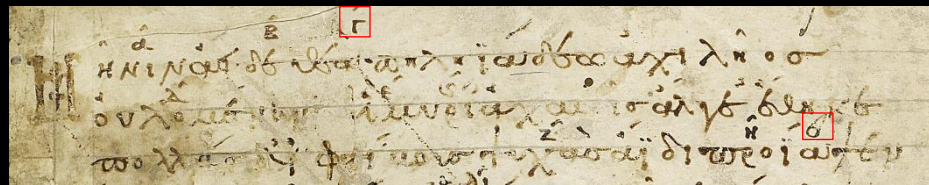 α Β Γ
Μῆνιν ἄειδε θεὰ πηληϊάδεω ἀχιλῆος
οὐλομένην ἣ μυρί' ἀχαιοῖσ ἄλγε' ἔθηκε
ζ Η θ
πολλὰσ δ' ἰφθίμουσ ψυχὰσ ἄϊδι προΐαψεν